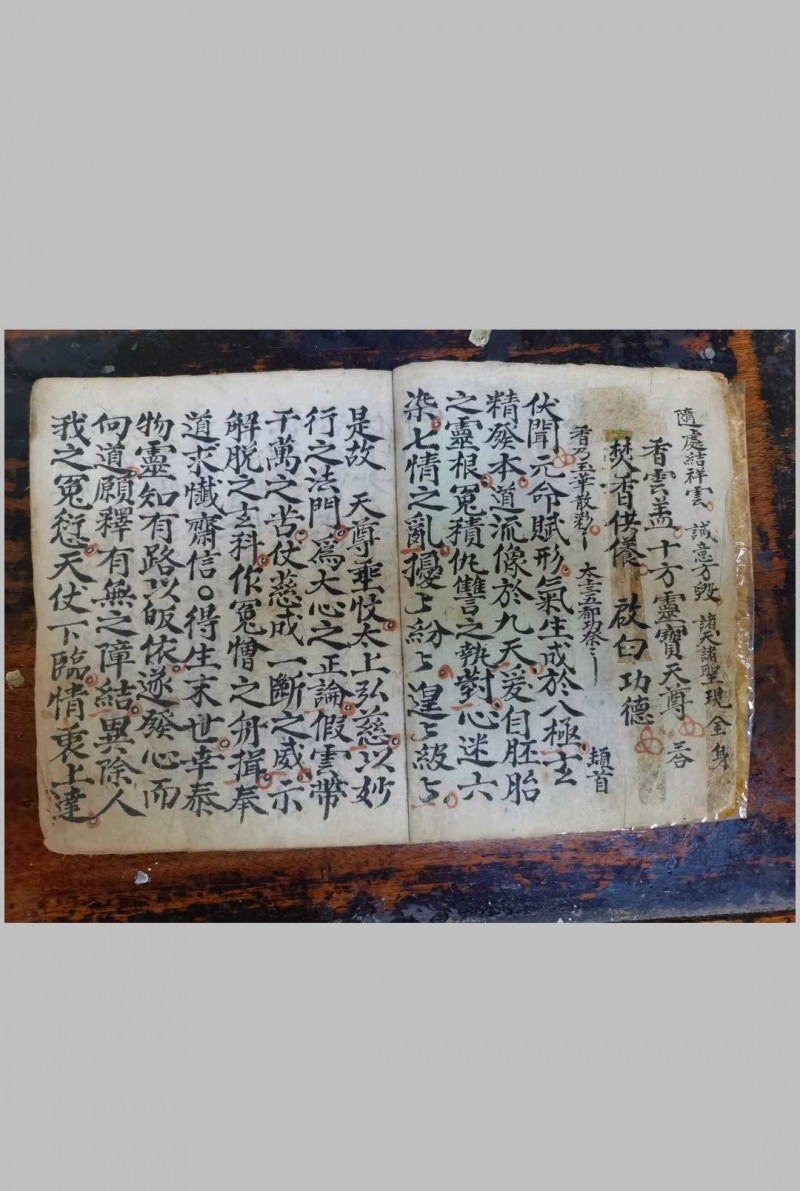 隨處結祥雲 誠意方毀 諸天諸聖現全身
香雲盖 十方靈寶天尊 三合
焚香供養 啟白功德
香乃玉華散彩 太 五 都功祭 頫首
伏聞 元命賦形氣生成於八極玄
精發本道流像於九天爰自胚胎
之靈根冤積仇讐之執對心迷六
染七情之亂擾〻紛〻遑〻級〻
是故 天尊垂忮太上弘慈以妙
行之法門爲大心之正論假雲帶
千萬之苦仗慈成一斷之威示
解脱之玄科作冤憎之舟揖奉
道求懴齋信○得生末世幸忝
物靈知有路以皈依遂發心而
向道願釋有無之障結異除人
我之冤愆天仗下臨情衷上達